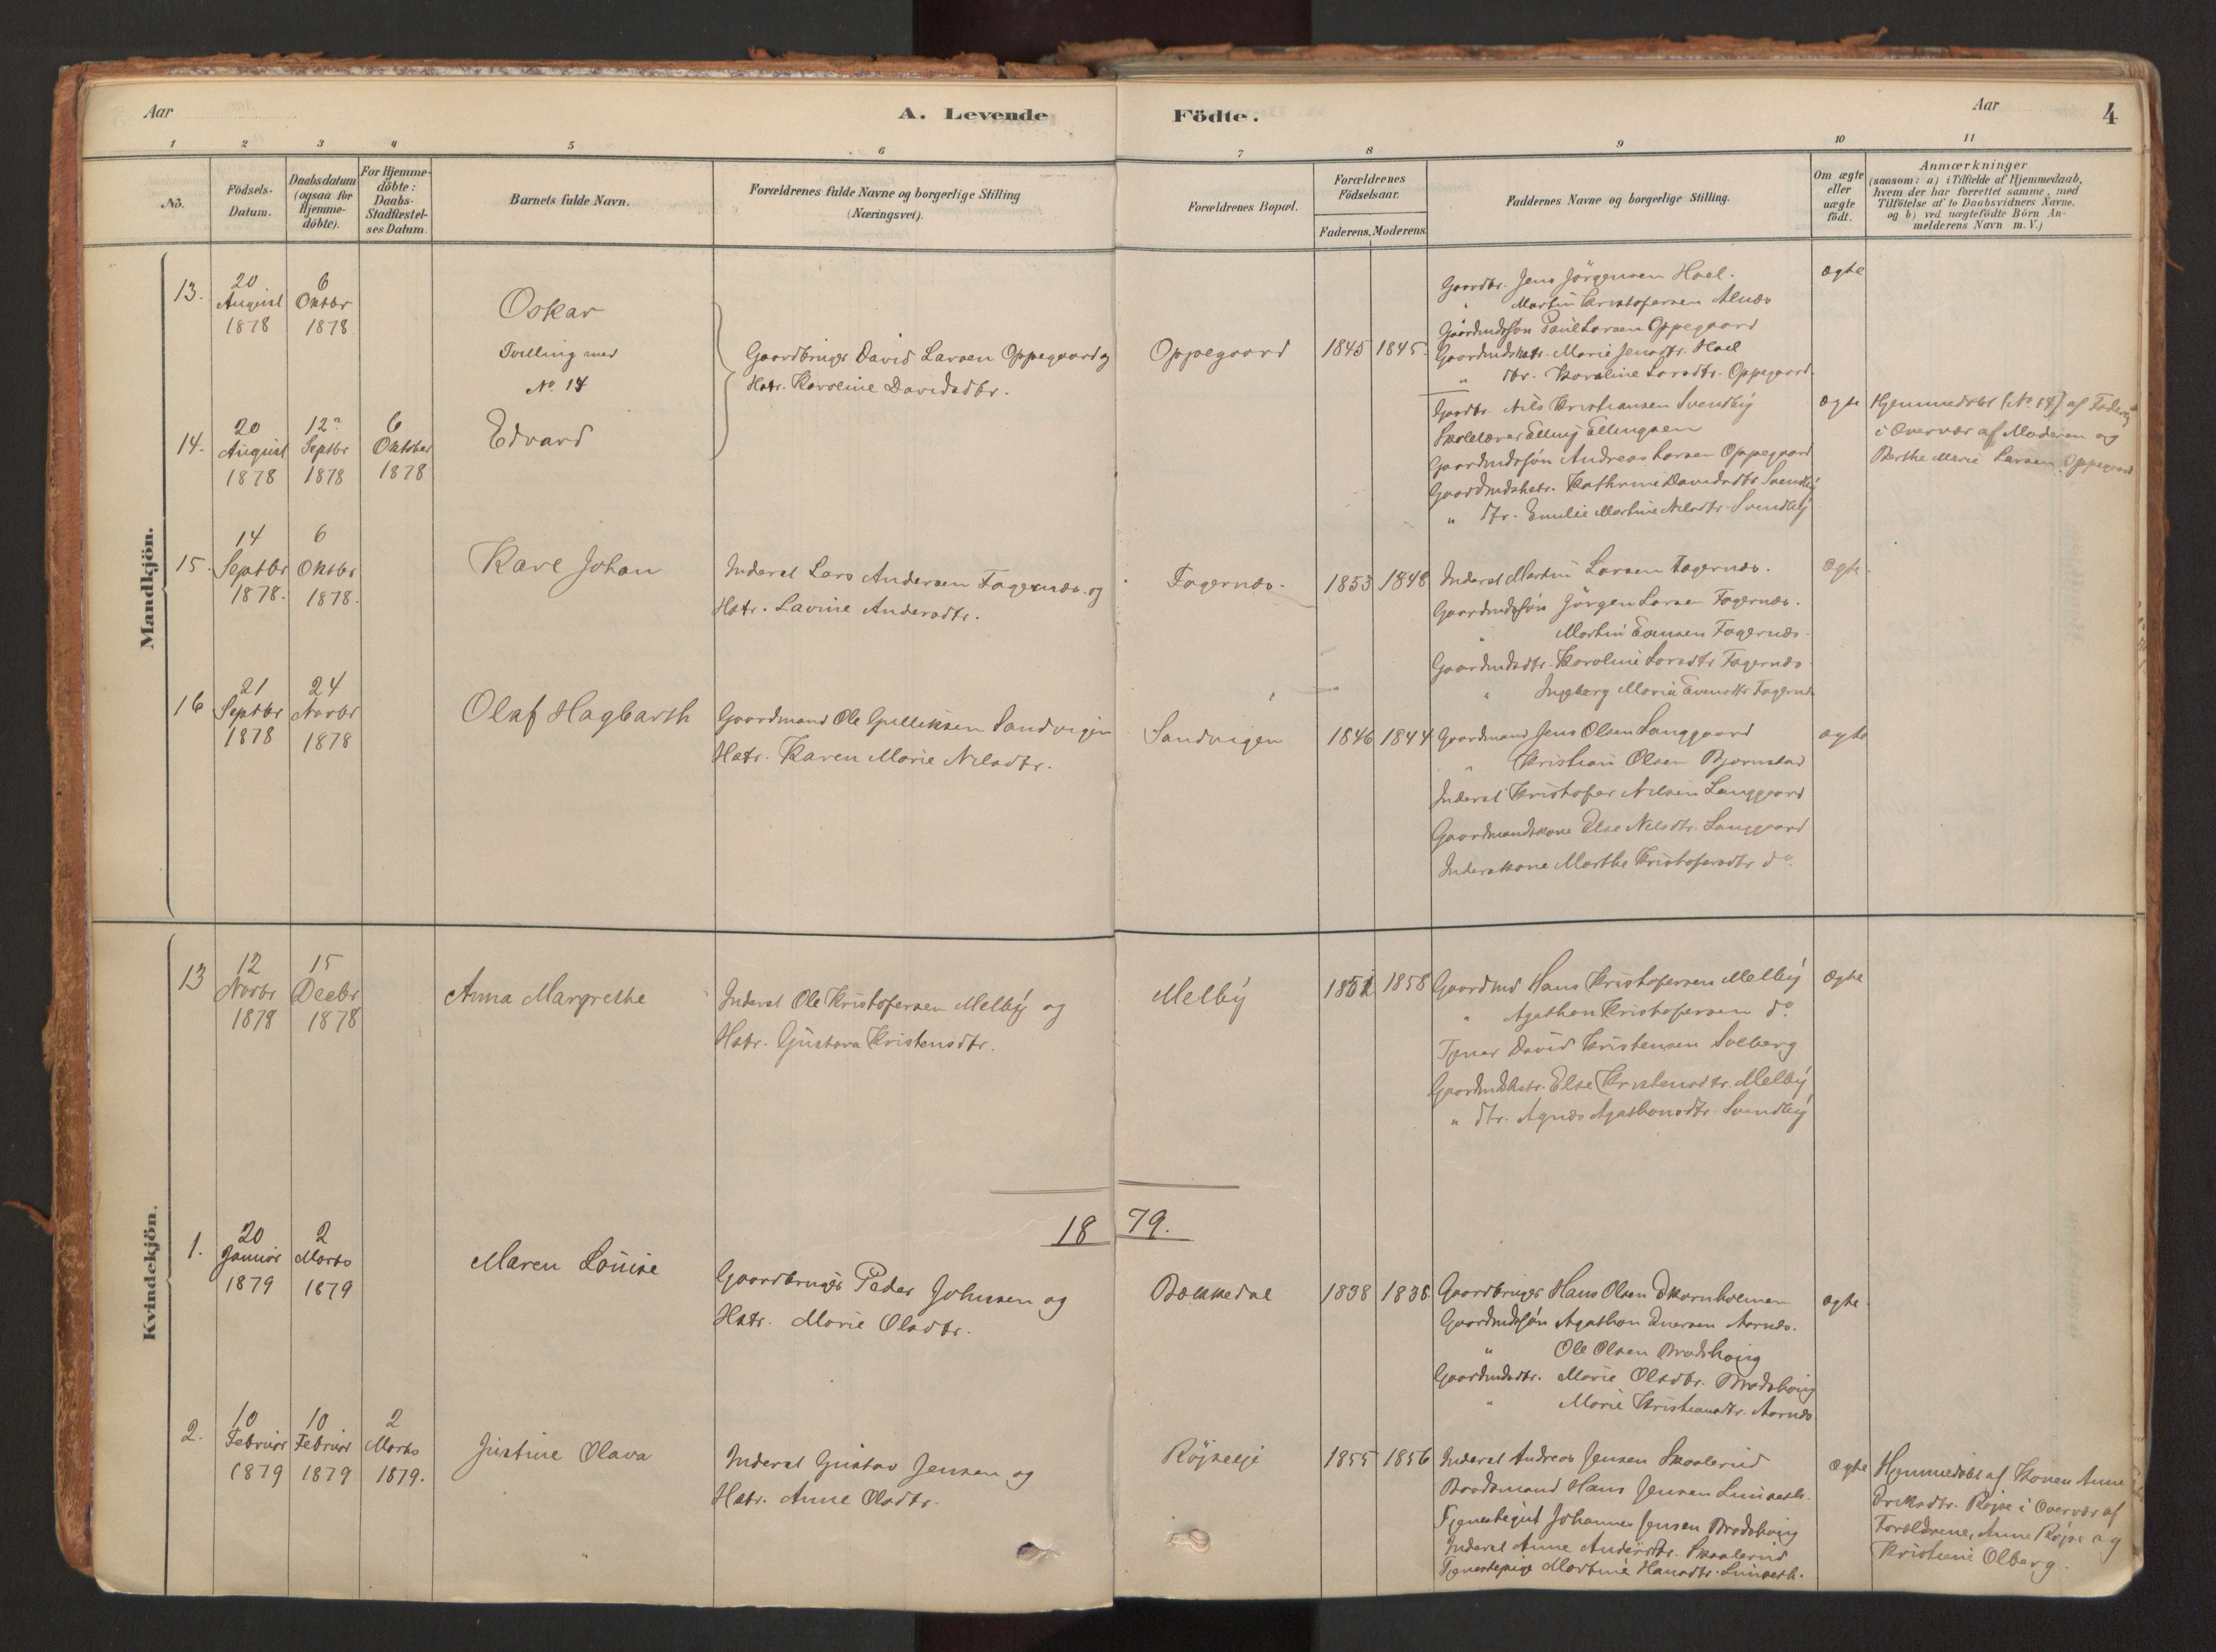 Aar
A. Levende
Födte.
Aar
4
1 2 3 4 5 6 7 8 9 10 11
No.
Födsels-Datum.
Daabsdatum (ogsaa for Hjemme-döbte).
For Hjemme-döbte: Daabs-Stadfæstel-ses Datum.
Barnets fulde Navn.
Forældrenes fulde Navne og borgerlige Stilling
(Næringsvei).
Forældrenes Bopæl.
Forældrenes Födselsaar.
Faderens. Moderens.
Faddernes Navne og borgerlige Stilling.
Om ægte eller uægte födt.
Anmærkninger
(saasom: a) i Tilfælde af Hjemmedaab,
hvem der har forrettet samme, med
Tilföielse af to Daabsvidners Navne,
og b) ved uægtefödte Börn An-
melderens Navn m. V.)
Mandkjön.
13.
20 August 1878
6 Oktbr 1878
Oskar
Tvilling med
No 14
Gaardbruger David Larsen Oppegaard og
Hstr. Karoline Davidsdtr.
Oppegaard
1845 1845
Gaardbr. Jens Jörgensen Hoel.
" Martin Kristofersen Alnæs
Gaardmdssön Paul Larsen Oppegaard
Gaardmdshstr. Marie Jensdtr. Hoel
" dtr. Karoline Larsdtr. Oppegaard
ægte
14.
20 August 1878
12 Septbr 1878
6 Oktober 1878
Edvard
Gardbr. Nils Kristiansen Svendby
Skolelærer Elling Ellingsen
Gaardmdssön Andreas Larsen Oppegaard
Gaardmdshstr. Kathrine Davidsdtr Svendby
" dtr. Emilie Martine Nilsdtr. Svendby
ægte
Hjemmedöbt (No 14) af Faderen
i Overvær af Moderen og
Berthe Marie Larsen Oppegaard
15.
14 Septbr 1878.
6 Oktbr 1878.
Karl Johan
Inderst Lars Andersen Fagernæs og
Hstr. Lavine Andersdtr.
Fagernæs
1853 1848
Inderst Martin Larsen Fagernæs.
Gaardmdssön Jörgen Larsen Fagernæs.
" Martin Evensen Fagernæs
Gaardmdsdtr. Karoline Larsdtr Fagernæs
" Ingeborg Marie Evensdtr Fagernæs
ægte
16
21 Septbr 1878
24 Novbr 1878
Olaf Hagbarth
Gaardmand Ole Gulliksen Sandvigen
Hstr. Karen Marie Nilsdtr.
Sandvigen
1846 1844
Gaardmand Jens Olsen Langgaard
" Kristian Olsen Bjørnstad
Inderst Kristofer Nilsen Langgaard
Gaardmandskone Else Nilsdtr. Langgaard
Inderstkone Marthe Kristofersdtr do.
ægte
Kvindekjön.
13
12 Novbr 1878
15 Decbr 1878
Anna Margrethe
Inderst Ole Kristofersen Melby og
Hstr. Gustava Kristensdtr.
Melby
1852 1858
Gaardmd Hans Kristofersen Melby
" Agathon Kristofersen do.
Tjener David Kristensen Solberg
Gaardmdshstr. Else Kristensdtr. Melby
" dtr. Agnes Agathonsdtr. Svendby
ægte
18 79.
1.
20 Januar 1879
2 Marts 1879
Maren Louise
Gaardbruger Peder Johnsen og
Hstr. Marie Olsdtr.
Bækkedal
1838 1838
Gaardbruger Hans Olsen Skornholmen
Gaardmdssön Agathon Iversen Aarnæs.
" Ole Olsen Bradshaug
Gaardmdsdtr. Marie Olsdtr. Bradshaug
" Marie Kristiansdtr. Aarnæs
ægte
2.
10 Februar 1879
10 Februar 1879
2 Marts 1879.
Justine Olava
Inderst Gustav Jensen og
Hstr. Anne Olsdtr.
Röjseeje
1855 1856
Inderst Andreas Jensen Skoolerud
Baadsmand Hans Jensen
Tjenestegut Johannes Jensen Bradshaug
Inderst Anne Andersdtr. Skoolerud
Tjenestepige Martine Hansdtr.
ægte
Hjemmedöbt af Konen Anne
Eriksdtr. Röjse i Overvær af
Forældrene, Anne Röjse og
Kristiane Olberg.